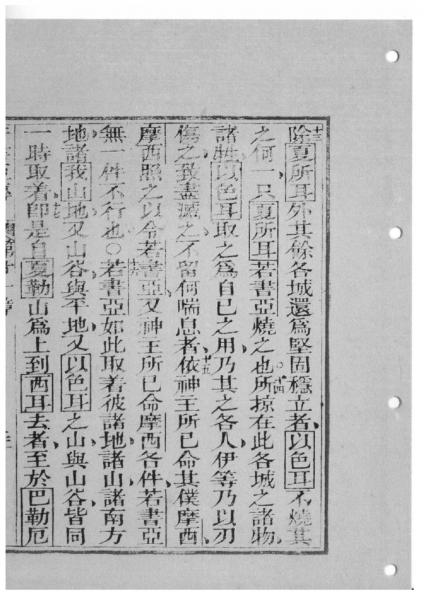 十三除夏所耳外其餘各城還爲堅固穩立者以色耳不燒其
之何一只夏所耳若書亞燒之也○十四所掠在此各城之諸物
諸牲以色耳取之爲自己之用乃其之各人伊等乃以刃
傷之致盡滅之不留何喘息者十五依神王所已命其僕摩西
摩西照之以令若書亞又神王所已命摩西各件若書亞
無一件不行也○十六若書亞如此取着彼諸地諸山諸南方
地諸我山地又山谷與平地又以色耳之山與山谷皆同
一時取着十七卽是自夏勒山爲上到西耳去者至於巴勒厄